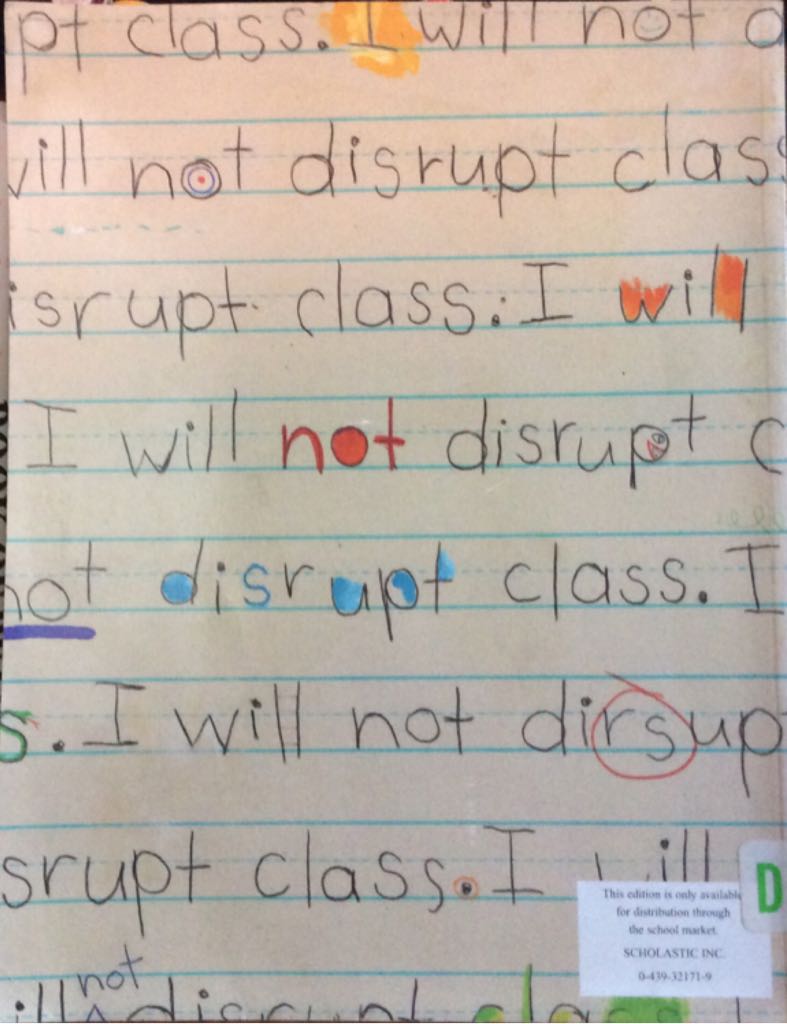 pt class. I will not d
will not disrupt class
isrupt class. I will
I will not disrupt c
not disrupt class. I
s. I will not dirsup
srupt class. I will
D
This edition is only available
for distribution through
the school market.
SCHOLASTIC INC.
0-439-32171-9
not
ill disrupt class